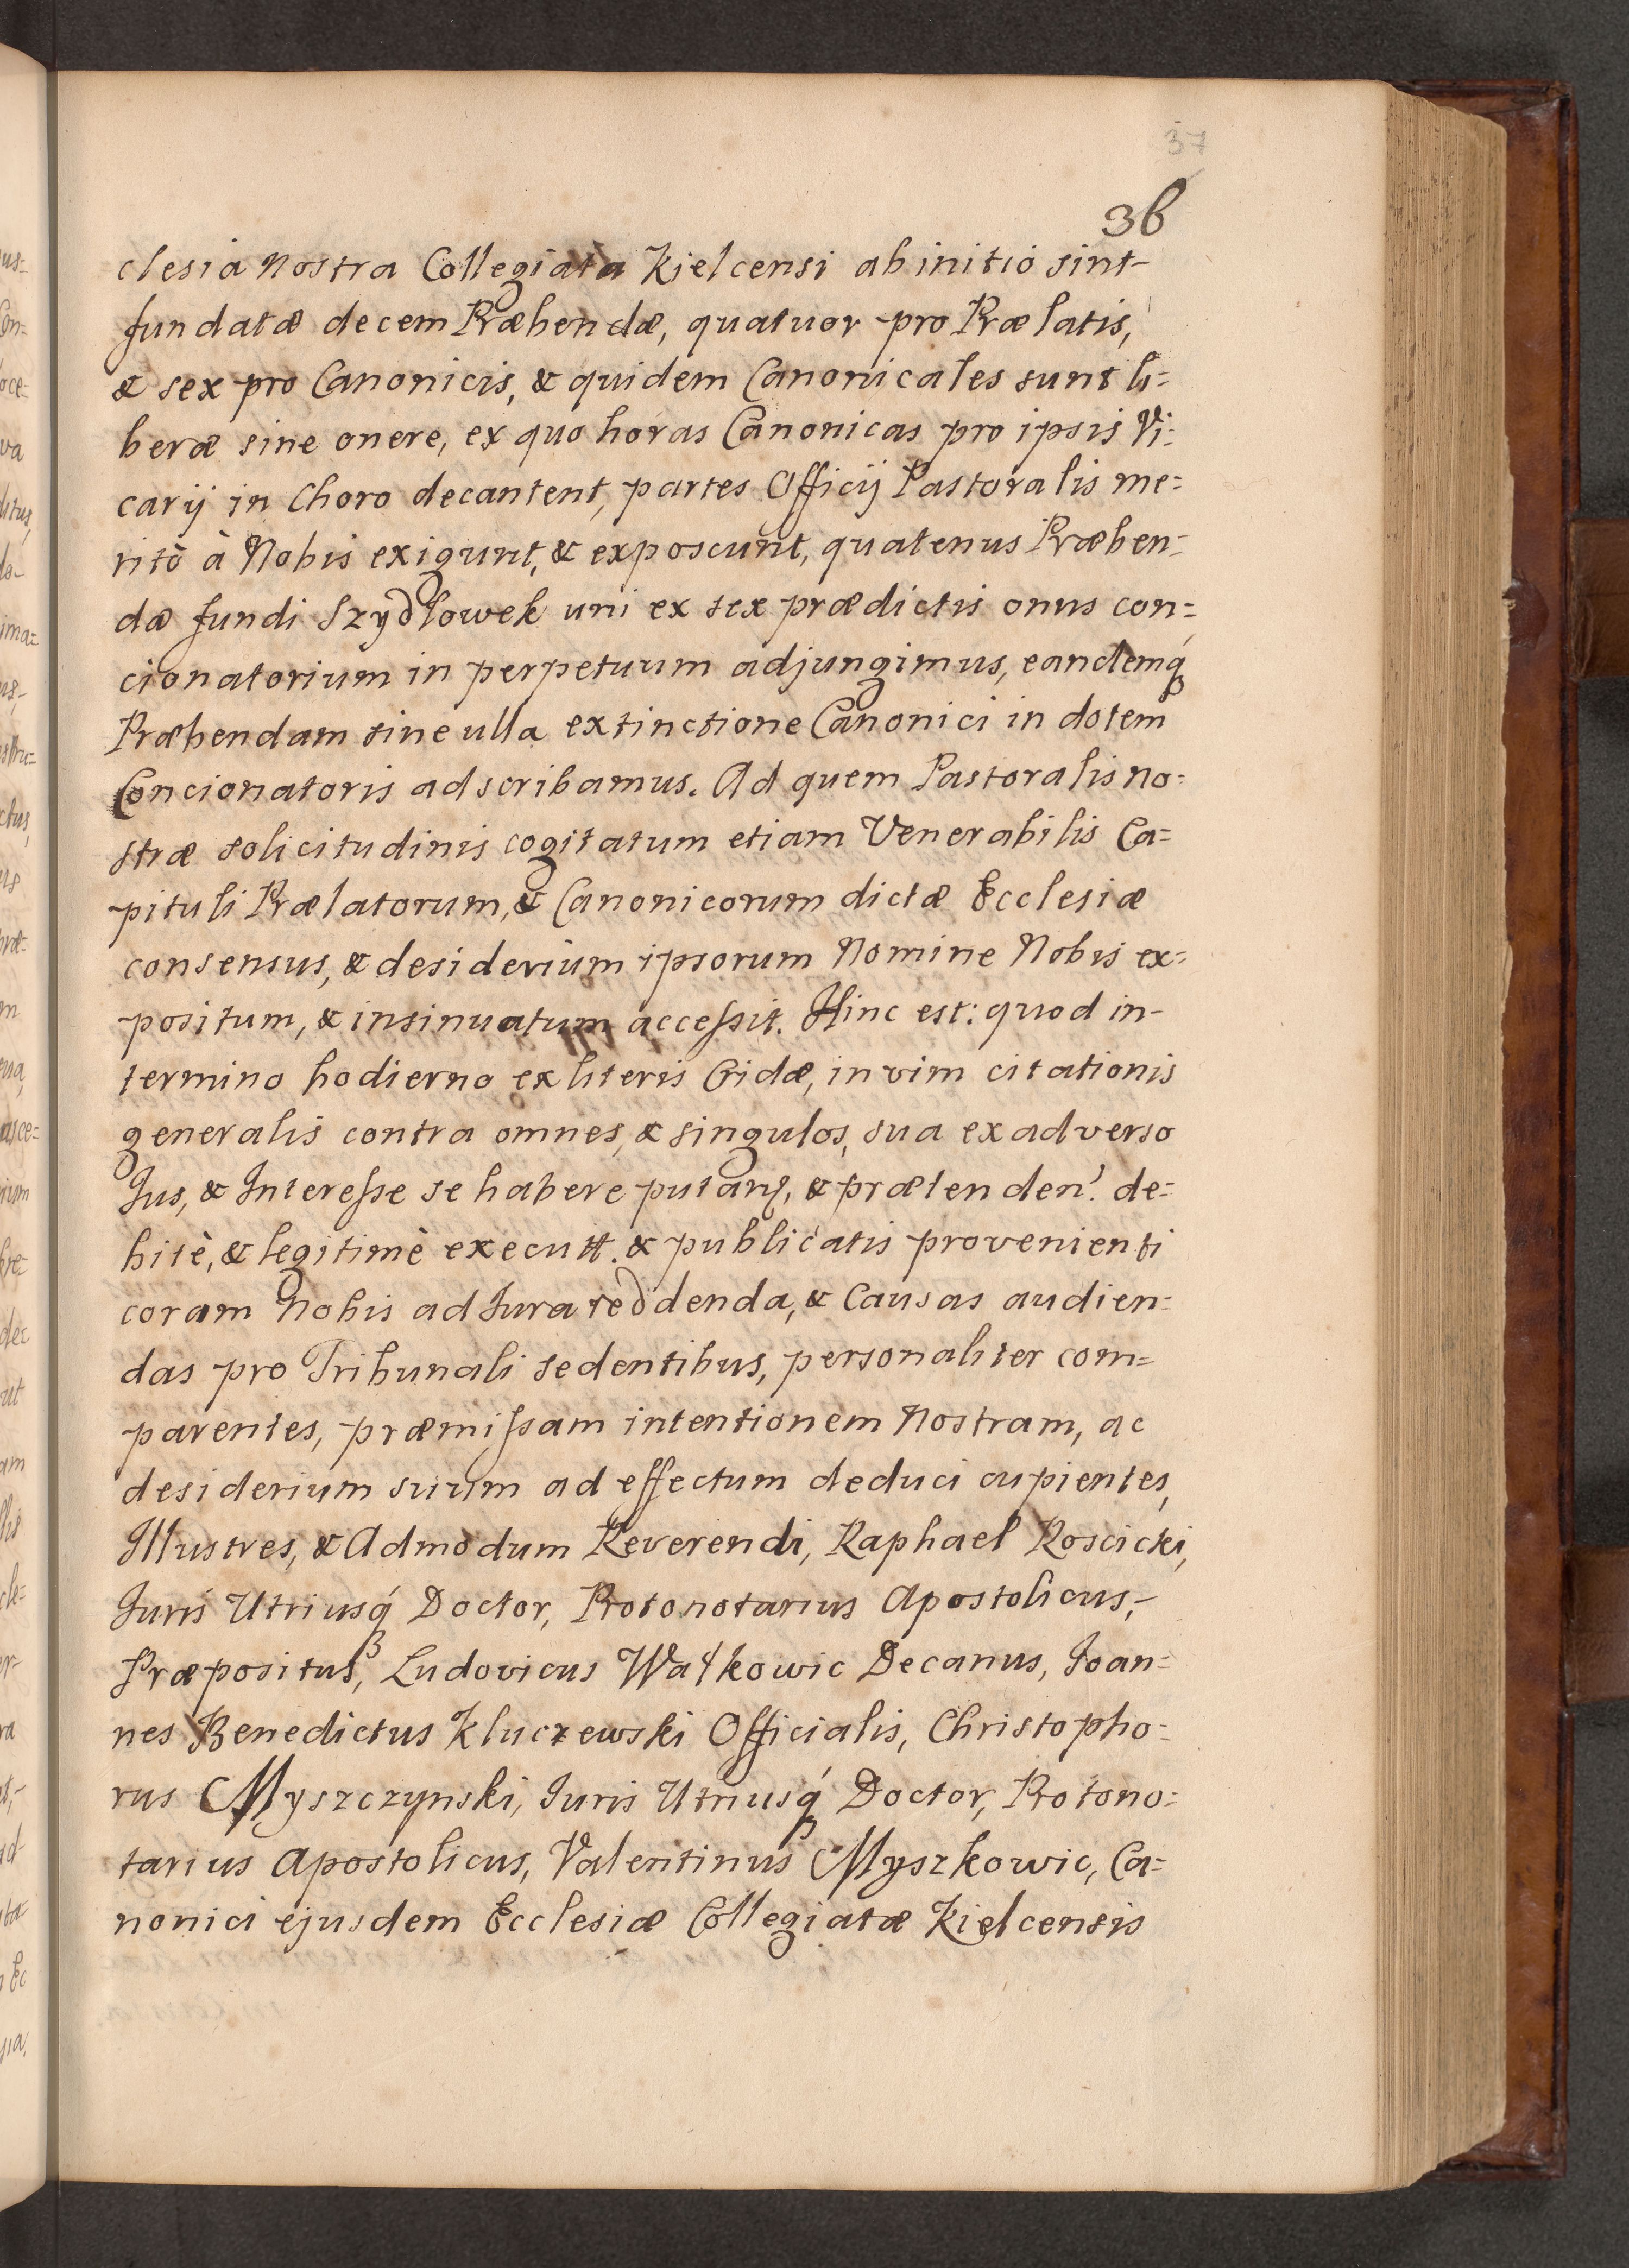 37
36
clesia Nostra Collegiata Kielcensi ab initio sint-
fundatæ decem Præbendæ, quatuor pro Prælatis,
& sex pro Canonicis, & quidem Canonicales sunt li=
beræ sine onere, ex quo horas Canonicas pro ipsis Vi=
carij in Choro decantent, partes Officij Pastoralis me=
ritò à Nobis exigunt, & exposcunt, quatenus Præben=
dæ fundi Szydlowek uni ex sex prædictis onus con=
cionatorium in perpetuum adjungimus, eandemq́
Præbendam sine ulla extinctione Canonici in dotem
Concionatoris adscribamus. Ad quem Pastoralis no=
stræ solicitudinis cogitatum etiam Venerabilis Ca=
pituli Prælatorum, & Canonicorum dictæ Ecclesiæ
consensus, & desiderium ipsorum Nomine Nobis ex=
positum, & insinuatum accessit. Hinc est: quod in-
termino hodierno ex literis Cridæ, in vim citationis
generalis contra omnes, & singulos, sua ex adverso
Jus, & Interesse se habere putan, & prætenden. de=
bitè, & legitimè execut. & publicatis provenienti
coram Nobis ad Jura reddenda, & Causas audien=
das pro Tribunali sedentibus, personaliter com=
parentes, præmissam intentionem Nostram, ac
desiderium suum ad effectum deduci cupientes,
Illustres, & Admodum Reverendi, Raphael Roscicki,
Juris Utriusq́ Doctor, Protonotarius Apostolicus,-
Præpositus, Ludovicus Wałkowic Decanus, Joan=
nes Benedictus Kluczewski Officialis, Christopho=
rus Myszczynski, Juris Utriusq́ Doctor, Protono=
tarius Apostolicus, Valentinus Myszkowic, Ca=
nonici ejusdem Ecclesiæ Collegiatæ Kielcensis